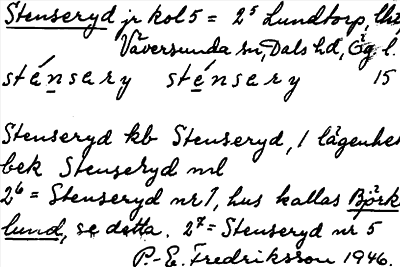 Stenseryd jr kol 5 = 2⁵ Lundtorp,
Väversunda sn, Dals hd, Ög. l.
sténsery sténsery 15
Stenseryd kb Stenseryd, 1 lägenhet
bek Stenseryd ml
2⁶ = Stenseryd nr 1, hus kallas Björk
lund, se detta. 2⁷ = Stenseryd nr 5
P.-E. Fredriksson 1946.